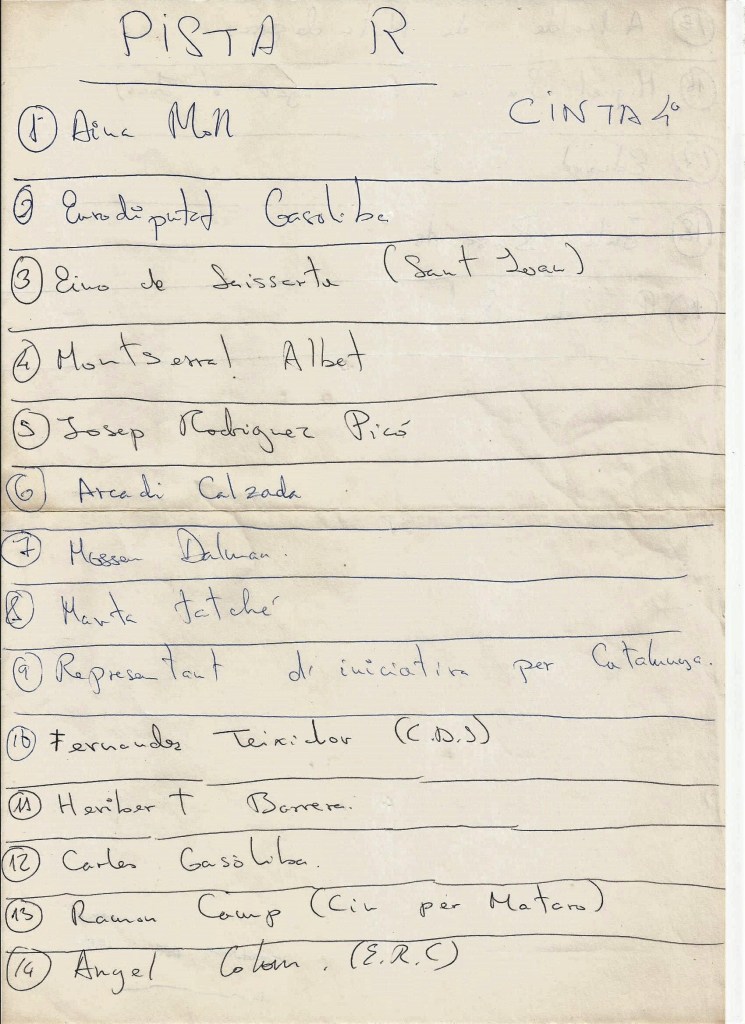 PISTA R
CINTA 4º
1 Aina Moll
2 Eurodiputat Gasoliba
3 de (Sant Joan)
4 Montserrat Albet
5 Josep Rodriguez Picó
6 Arcadi Calzada
7 Mossen Dalmau.
8 Marta Tatché
9 Representant d'iniciativa per Catalunya.
10 Fernandez Teixidor (C.D.S)
11 Heribert Barrera.
12 Carles Gasòliba.
13 Ramon Camp (Ciu per Mataro)
14 Angel Colom. (E.R.C)